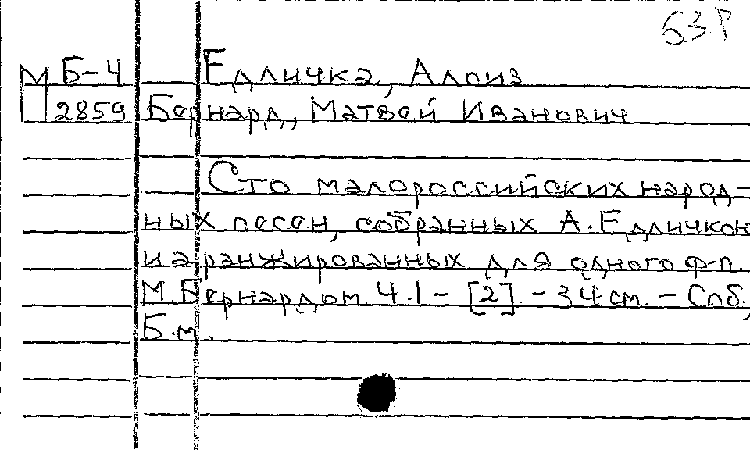 53Р
М Б-4 Едличка, Алоиз
2859 Бернард, Матвей Иванович
Сто малороссийских народ-
ных песен, собранных А. Едличкой
и аранжированных для одного ф-п.
М. Бернардом. Ч. 1 - [2]. - 34 см. - Спб.,
Б.м.